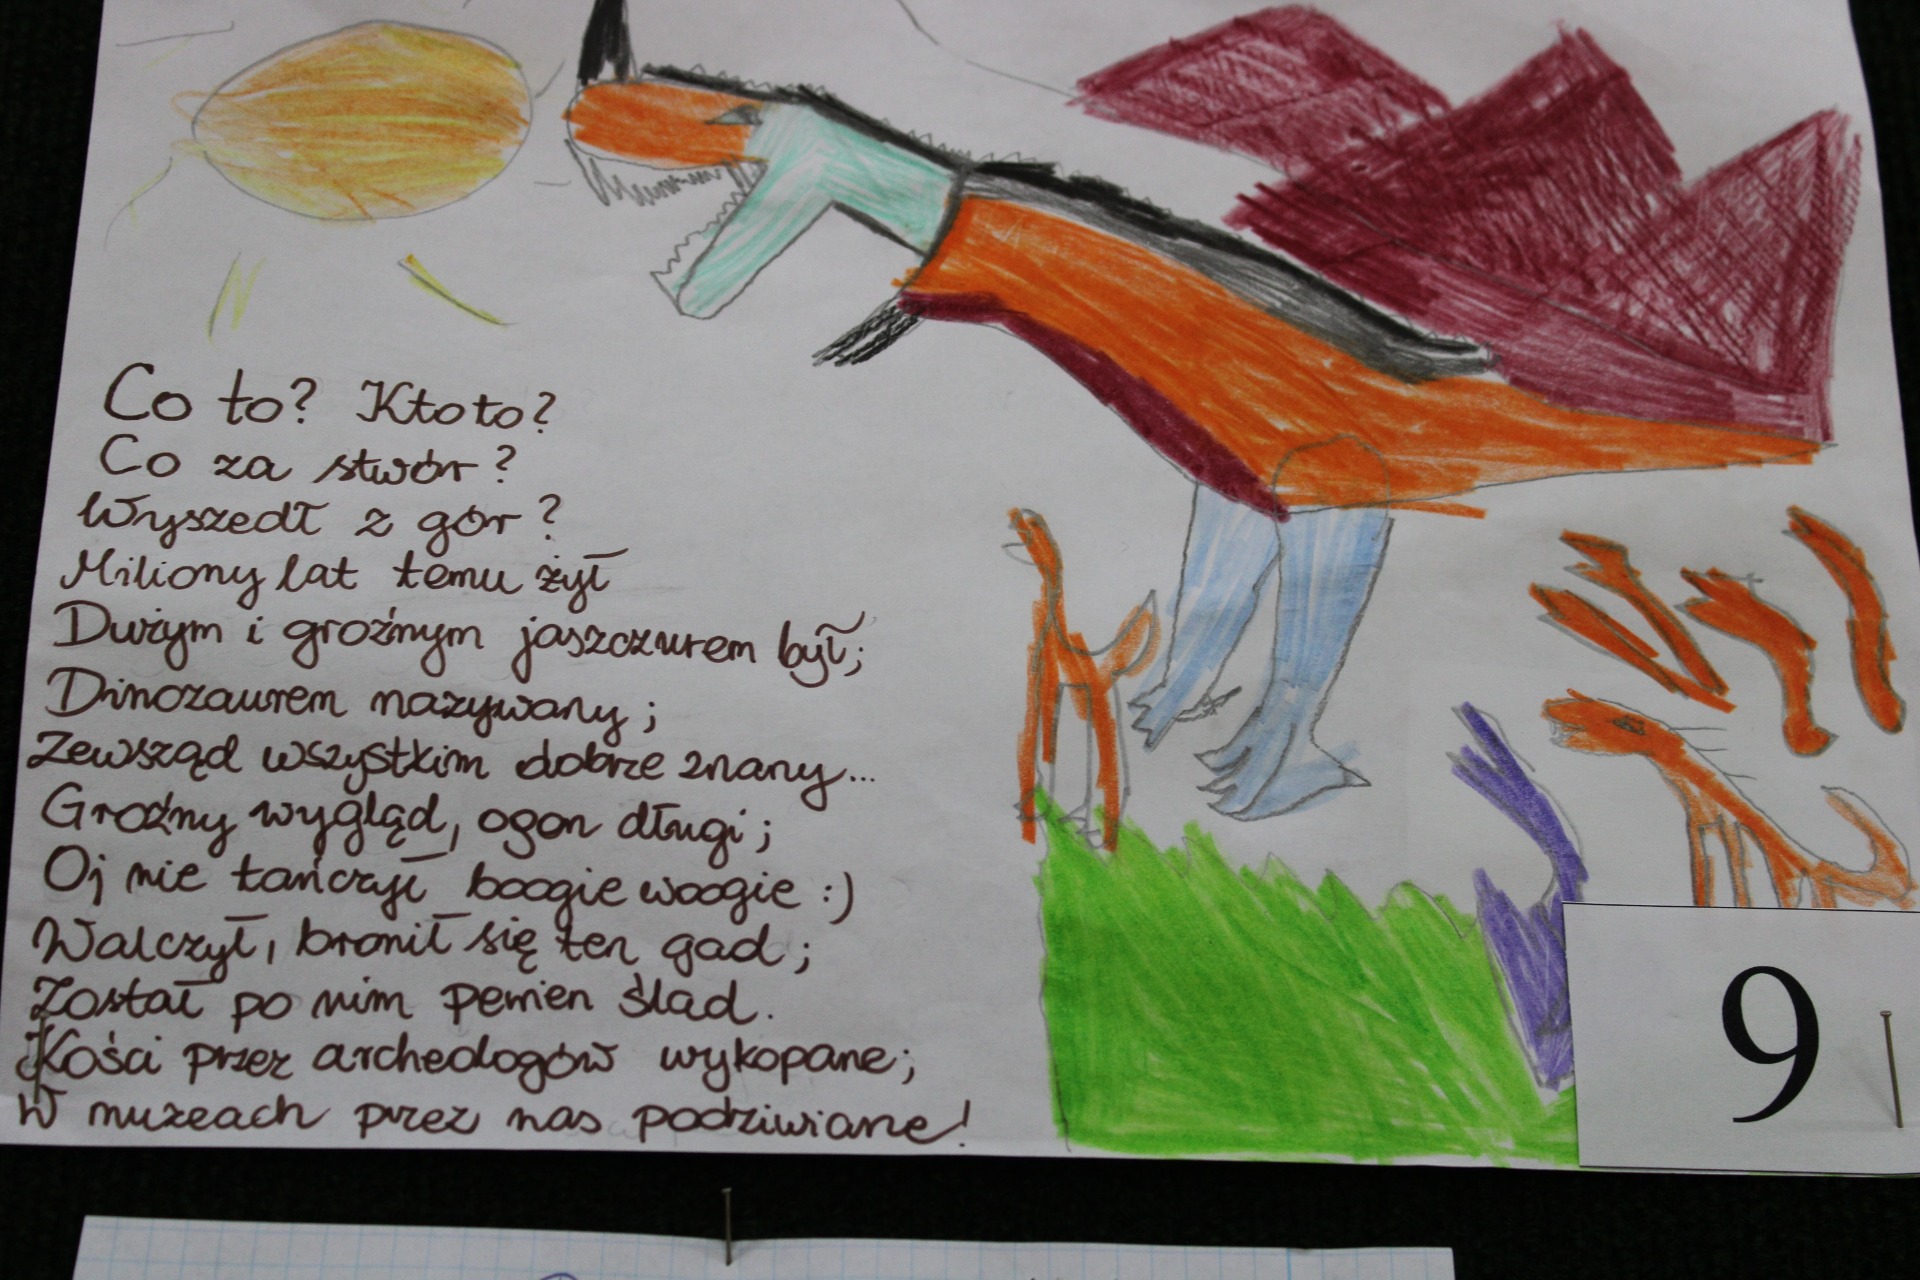 Co to? Kto to?
Co za stwór?
Wyszedł z gór?
Miliony lat temu żył
Dużym i groźnym jaszczurem był;
Dinozaurem nazywany;
Zewsząd wszystkim dobrze znany...
Groźny wygląd, ogon długi;
Oj nie tańczył boogie woogie :)
Walczył, bronił się ten gad;
Został po nim pewien ślad.
Kości przez archeologów wykopane;
W muzeach przez nas podziwiane!
9